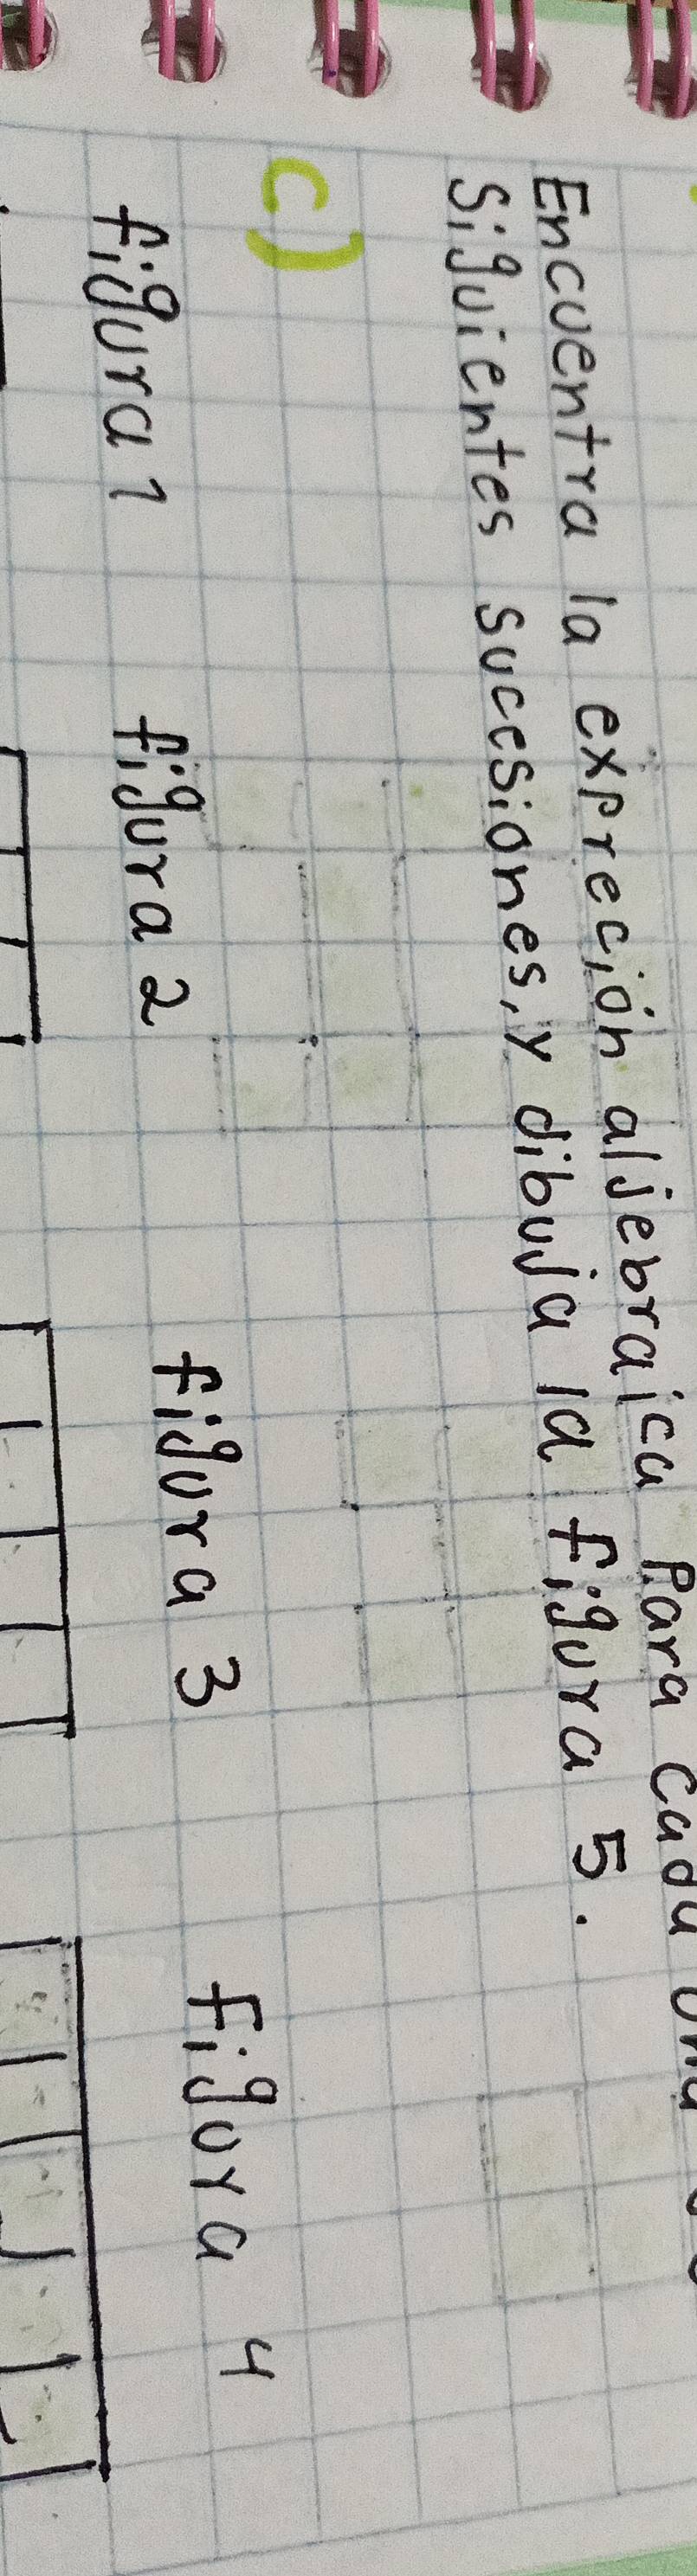 Encuentra la expreción aljebraica Para cada una
Siguientes sucesiones, y dibuja la figura 5.
c)
figura 1 figura 2 figura 3 figura 4